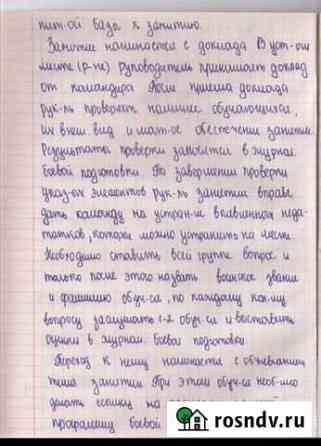 пит-ой базы к занятию.
Занятие начинается с доклада В уст-ом
месте (р-не) Руководитель принимает доклад
от командира После приёма доклада
рук-ль проверяет наличие обучающихся,
их внеш. вид и мат-ое обеспечение занятия.
Результаты проверки заносятся в журнал
боевой подготовки. По завершении проверки
указ-ых элементов рук-ль занятия вправе
дать команду на устран-ие выявленных недо-
татков, которые можно устранить на месте.
Необходимо ставить всей группе вопрос и
только после этого назвать воинское звание
и фамилию обуч-ся, по каждому кон-му
вопросу заслушать 1-2 обуч-ся и выставить
оценки в журнал боевой подготовки
Переход к нему начинается с объявления
темы занятия При этом обуч-ся необ-мо
сделать ссылку на
программу боевой
rosndv.ru